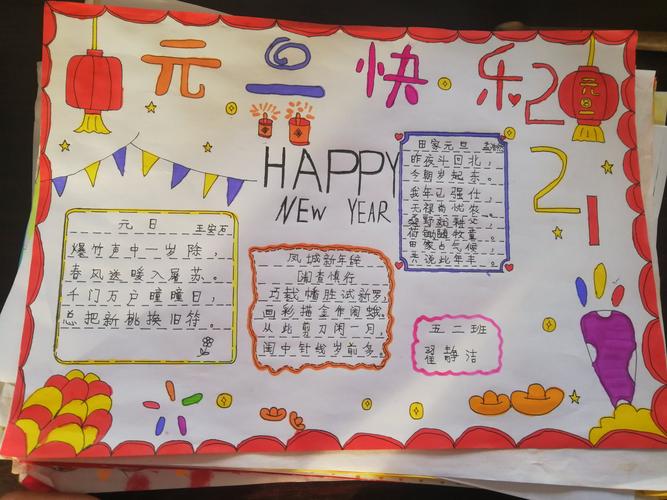 元旦快乐
2021
元旦
HAPPY
NEW YEAR
元日 王安石
爆竹声中一岁除，
春风送暖入屠苏。
千门万户瞳瞳日，
总把新桃换旧符。
凤城新年辞
[清]查慎行
巧裁幡胜试新罗，
画彩描金作闹蛾。
从此剪刀闲一月，
闺中针线岁前多。
田家元旦 孟浩然
昨夜斗回北，
今朝岁起东。
我年已强仕，
无禄尚忧农。
桑野就耕父，
荷锄随牧童。
田家占气候，
共说此年丰。
五二班
翟静洁